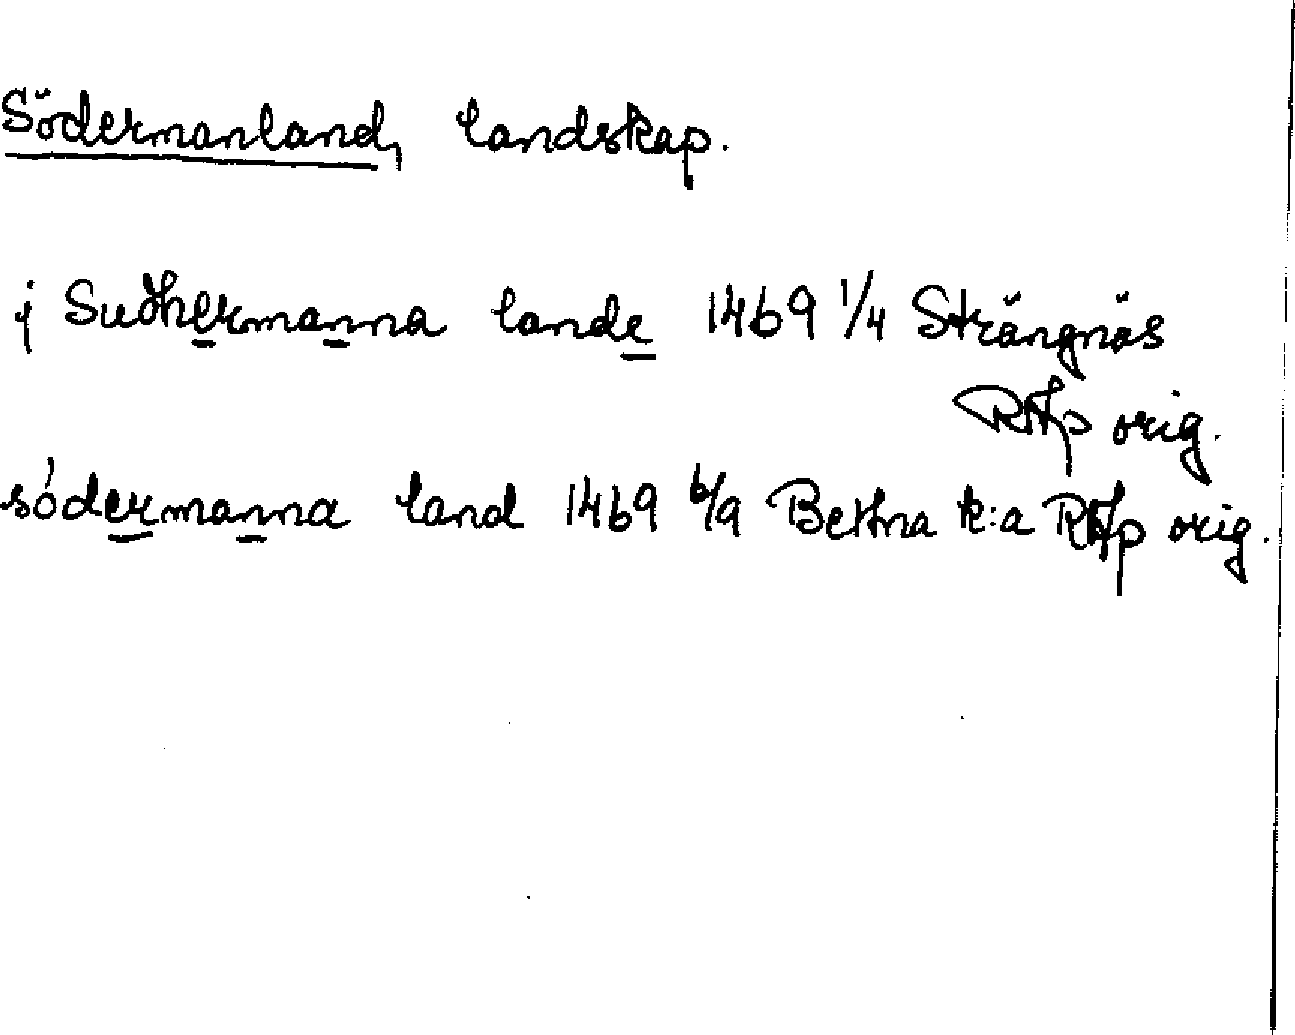 Södermanland, landskap.
j Sudhermanna lande 1469 1/4 Strängnäs
RAp orig.
södermanna land 1469 6/9 Bettna k:a RAp orig.